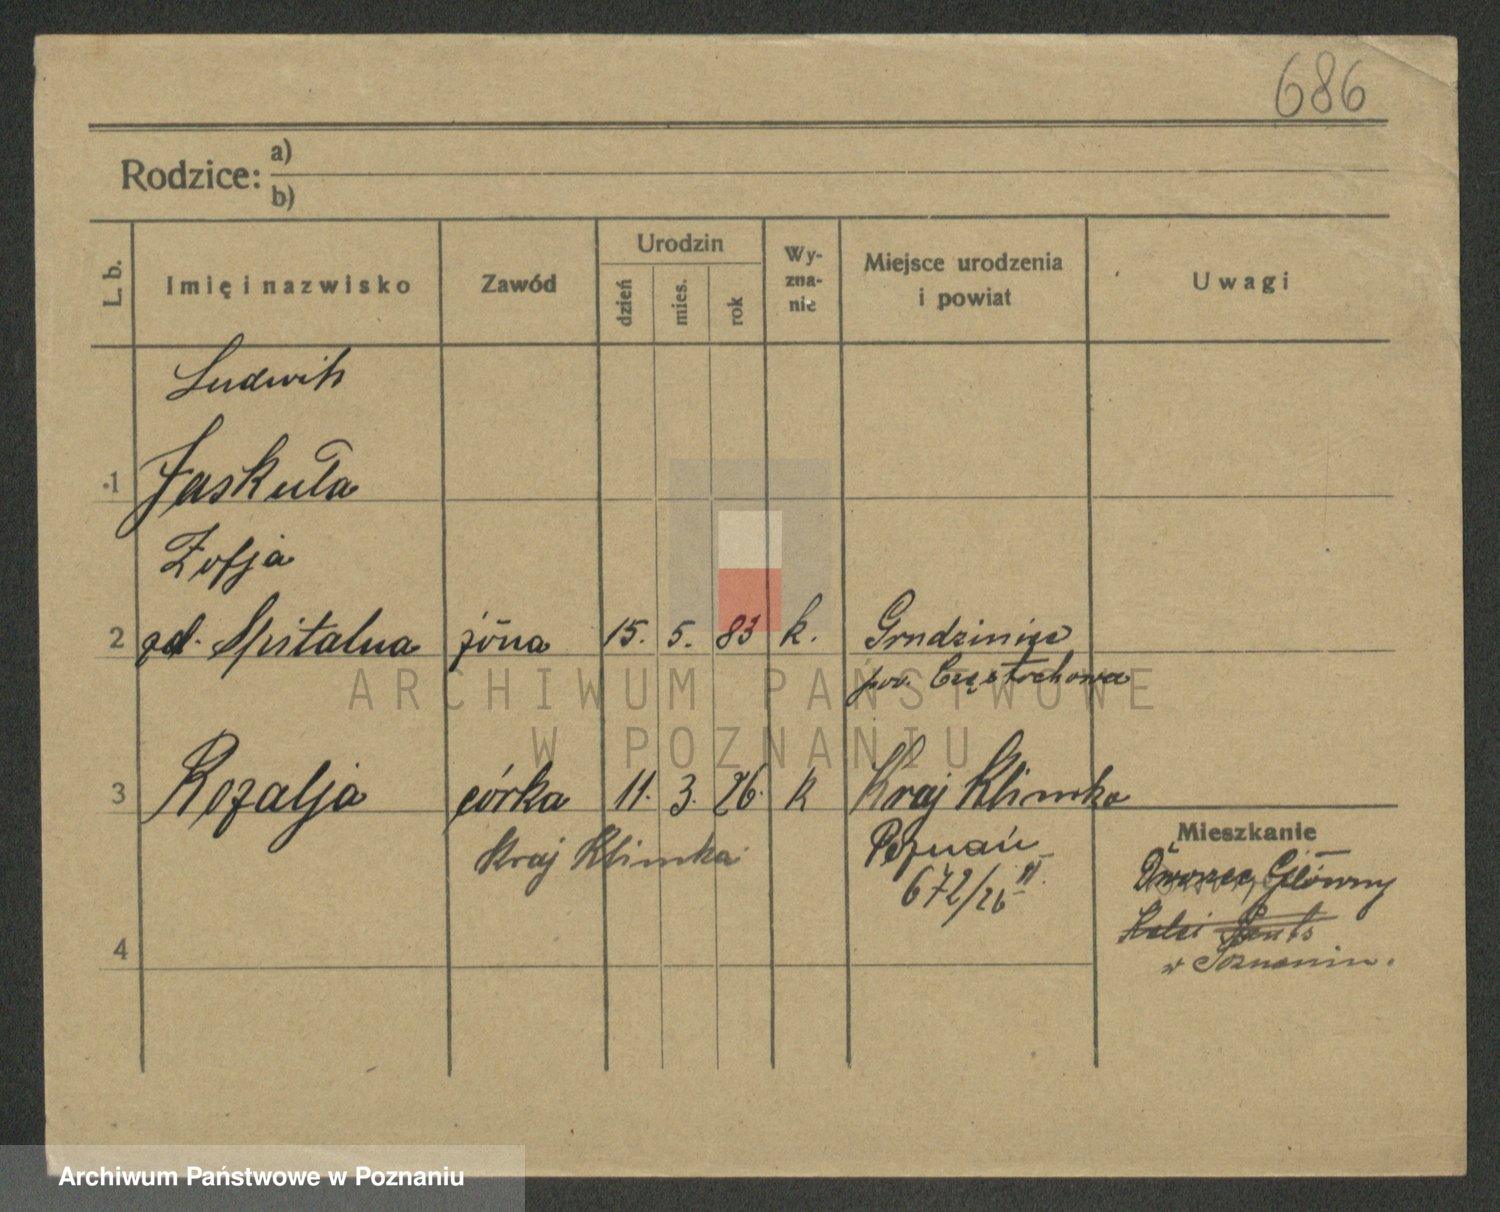 686
Rodzice: a)
b)
L. b. Imię i nazwisko Zawód Urodzin dzień mies. rok Wyznanie Miejsce urodzenia i powiat Uwagi
Ludwik
1 Jaskuła
Zofja
2 zd. Spitalna żona 15. 5. 83 k. Grudzinice
pow. Częstochowa
3 Rozalja córka 11. 3. 26. k Kraj Klinika
Kraj Klinika Poznań
672/26 II
Mieszkanie
Dworzec Główny
4
w Poznaniu.
ARCHIWUM PAŃSTWOWE
W POZNANIU
Archiwum Państwowe w Poznaniu